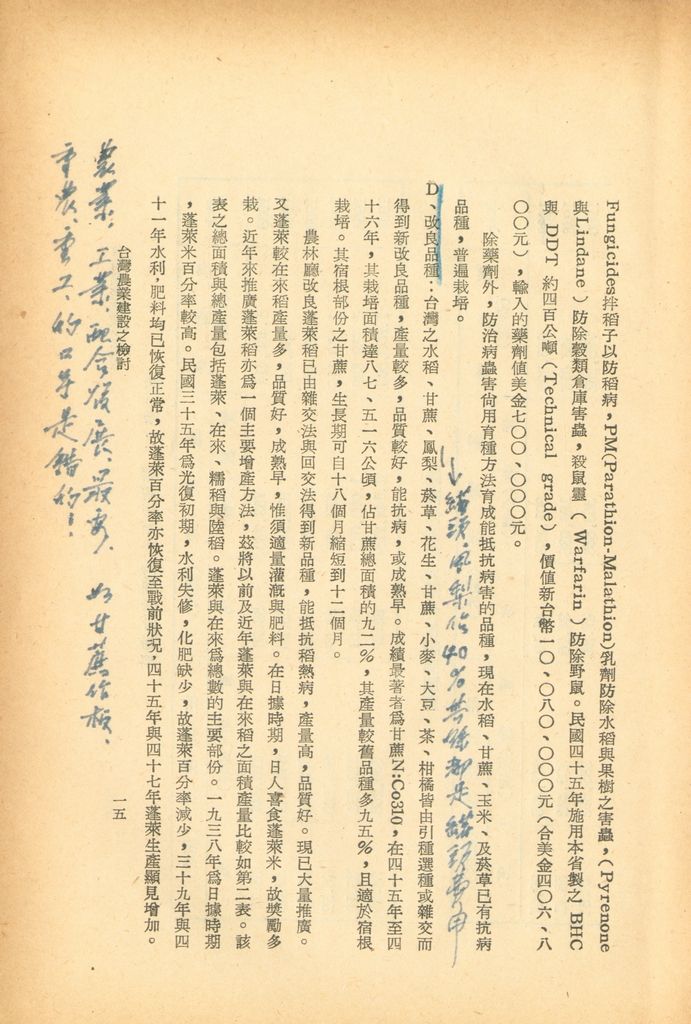 Fungicides拌稻子以防稻病，PM(Parathion-Malathion)乳劑防除水稻與果樹之害蟲，(Pyrenone
與Lindane)防除穀類倉庫害蟲，殺鼠靈(Warfarin)防除野鼠。民國四十五年施用本省製之 BHC
與 DDT 約四百公噸(Technical grade)，價值新台幣一〇、〇八〇、〇〇〇元(合美金四〇六、八
〇〇元)，輸入的藥劑值美金七〇〇、〇〇〇元。
除藥劑外，防治病蟲害尚用育種方法育成能抵抗病害的品種，現在水稻、甘蔗、玉米、及菸草已有抗病
品種，普遍栽培。
罐頭鳳梨
D、改良品種：台灣之水稻、甘蔗、鳳梨、菸草、花生、甘蔗、小麥、大豆、茶、柑橘皆由引種選種或雜交而
得到新改良品種，產量較多，品質較好，能抗病，或成熟早。成績最著者爲甘蔗N:Co310，在四十五年至四
十六年，其栽培面積達八七、五一六公頃，佔甘蔗總面積的九二%，其產量較舊品種多九五%，且適於宿根
栽培。其宿根部份之甘蔗，生長期可自十八個月縮短到十二個月。
農林廳改良蓬萊稻已由雜交法與回交法得到新品種，能抵抗稻熱病，產量高，品質好。現已大量推廣。
又蓬萊較在來稻產量多，品質好，成熟早，惟須適量灌溉與肥料。在日據時期，日人喜食蓬萊米，故獎勵多
栽。近年來推廣蓬萊稻亦爲一個主要增產方法，茲將以前及近年蓬萊與在來稻之面積產量比較如第二表。該
表之總面積與總產量包括蓬萊、在來、糯稻與陸稻。蓬萊與在來爲總數的主要部份。一九三八年爲日據時期
，蓬萊米百分率較高。民國三十五年爲光復初期，水利失修，化肥缺少，故蓬萊百分率減少，三十九年與四
十一年水利，肥料均已恢復正常，故蓬萊百分率亦恢復至戰前狀況，四十五年與四十七年蓬萊生產顯見增加。
台灣農業建設之檢討
一五
農業、工業、配合發展、最要、如甘蔗作板、
重農、重工、的口号是錯的！